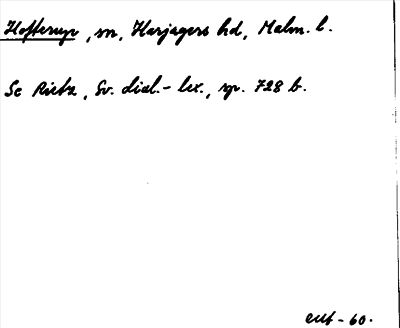 Hofterup, sn, Harjagers hd, Malm. l.
Se Rietz, Sv. dial.-lex., sp. 728 b.
-60.